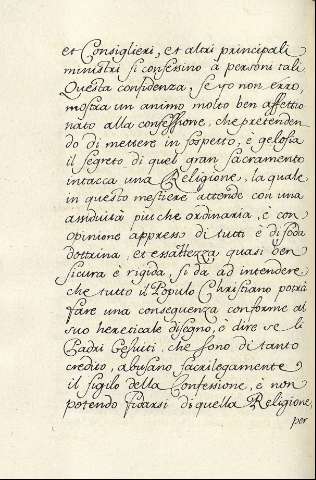 et Consiglieri, et altri principali
ministri si confessino à persone tali
Questa confidenza, se yo non erro,
mostra un animo molto ben affettio
nato alla confessione, che pretenden
do di mettere in sospetto, e gelosia
il segreto di quel gran sacramento
intacca una Religione, la quale
in questo mestiere attende con una
assiduità piu che ordinaria, è con
opinione appresso di tutti è di soda
dottrina, et esattezza quasi ben
sicura è rigida, si dà ad intendere,
che tutto il Populo Christiano potrà
fare una conseguenza conforme al
suo hereticale disegno, è dire se li
Padri Gesuiti, che sono di tanto
credito, abusano sacrilegamente
il sigilo della Confessione, è non
potendo fidarsi di quella Religione,
per